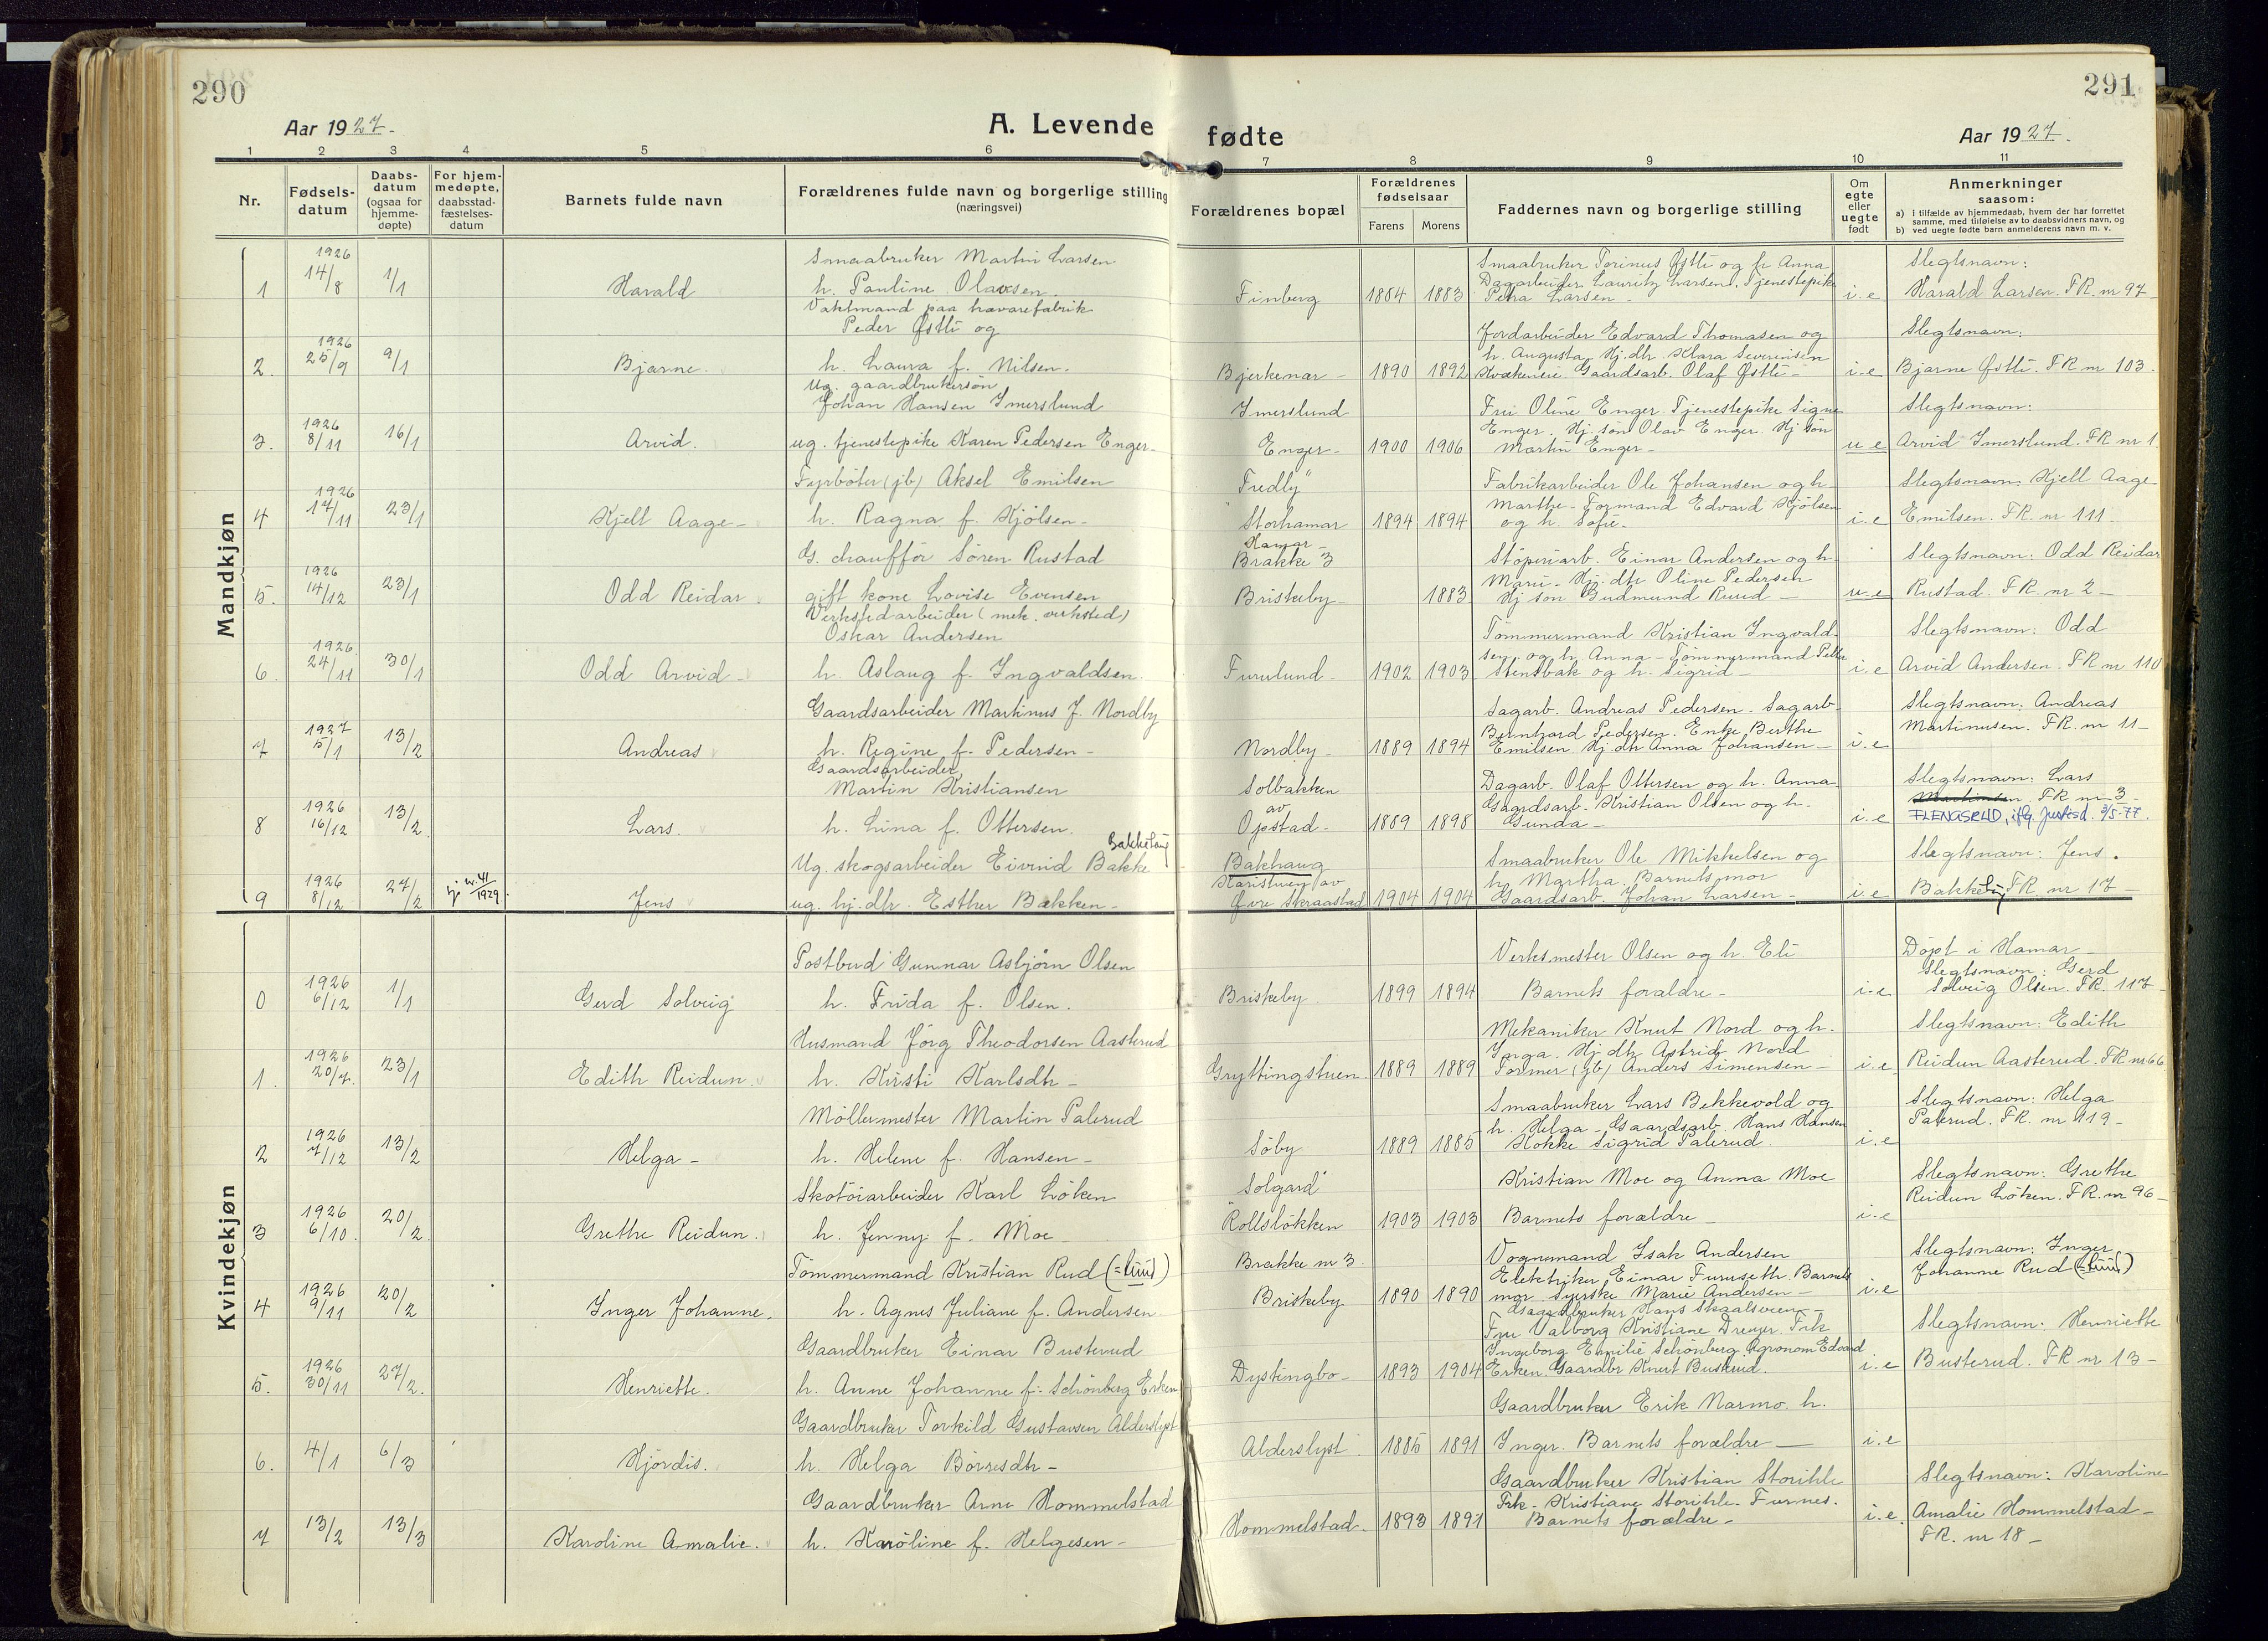 290
291
Aar 1927-
A. Levende fødte
Aar 1927-
1 2 3 4 5 6 7 8 9 10 11
Nr.
Fødsels-
datum
Daabs-
datum
(ogsaa for
hjemme-
døpte)
For hjem-
medøpte,
daabsstad-
fæstelses-
datum
Barnets fulde navn
Forældrenes fulde navn og borgerlige stilling
(næringsvei)
Forældrenes bopæl
Forældrenes
fødselsaar
Farens Morens
Faddernes navn og borgerlige stilling
Om
egte
eller
uegte
født
Anmerkninger
saasom:
a) i tilfælde av hjemmedaab, hvem der har forrettet
samme, med tilføielse av to daabsvidners navn, og
b) ved uegte fødte barn anmelderens navn m. v.
Mandkjøn
1926
Smaabruker Martin Larsen
Smaabruker Torinus Østli og fr Anna
Slegtsnavn:
1 14/8 1/1 Harald h. Pauline Olavsen
Dagarbeider Lauritz Larsen, Tjenestepike
Finberg 1884 1883 Petra Larsen - i.e Harald Larsen. FR. nr 97-
Vaktmand paa trævarefabrik
Peder Østli og
Jordarbeider Edvard Thomasen og
Slegtsnavn:
1926
2. 25/9 9/1 Bjarne. h. Laura f. Nilsen.
h. Augusta, Hj.dtr. Klara Severinsen
Bjerkenær - 1890 1892 Gaardsarb. Olaf Østli - i-e Bjarne Østli. FR nr 103.
Ug. gaardbrukersøn
Johan Hansen Imerslund
Imerslund
Fru Oline Enger. Tjenestepike Signe
Slegtsnavn:
1926
3. 8/11 16/1 Arvid. ug. tjenestepike Karen Pedersen Enger-
Enger. Hj. søn Olav Enger. Hj søn
Enger - 1900 1906 Martin Enger - u e Arvid Imerslund. FR nr 1.
Fyrbøter (jb) Aksel Emilsen
"Fredly"
Fabrikarbeider Ole Johansen og h.
Slegtsnavn. Kjell Aage
1926
4 17/11 23/1 Kjell Aage - h. Ragna f. Kjølsen-
Marthe- Formand Edvard Kjølsen
Storhamar 1894 1894 og h. Sofie- i-e Emilsen. FR. nr 111-
Hamar-
G. chauffør Søren Rustad
Brakke 3
Støperiarb. Einar Andersen og h.
Slegtsnavn: Odd Reidar
1926
5. 14/12 23/1 Odd Reidar. gift kone Lovise Evensen
Marie- Hj. dtr Oline Pedersen
Briskeby- 1883 Hj søn Gudmund Ruud - u.e Rustad. FR. nr 2-
Verkstedarbeider (mek. verksted)
Oskar Andersen
Tømmermand Kristian Ingvald-
Slegtsnavn: Odd
1926
6. 24/11 30/1 Odd Arvid - h. Aslaug f. Ingvaldsen.
sen og h. Anna - Tømmermand Petter
Furulund- 1902 1903 Stensbak og h. Sigrid- i.e Arvid Andersen. FR nr 110
Gaardsarbeider Martinus J. Nordby
Sagarb. Andreas Pedersen. Sagarb.
Slegtsnavn: Andreas
1927
Bernhard Pedersen. Enke Berthe
Martinusen. FR. nr 11-
7 5/1 13/2 Andreas h. Regine f. Pedersen-
Nordby- 1889 1894 Emilsen. Hj. dtr Anna Johansen- i.e
Gaardsarbeider
Martin Kristiansen
Solbakken
Dagarb. Olaf Ottersen og h. Anna
Slegtsnavn: Lars
av
1926
Gaardsarb. Kristian Olsen og h.
Martinsen. FR nr 3
8 16/12 13/2 Lars. h. Lina f. Ottersen.
Opstad- 1889 1898 Gunda- i.e FLENGSRUD, iflg. Justisd. 3/5-77.
Ug. skogsarbeider Eivind Bakke
Bakhaug
Smaabruker Ole Mikkelsen og
Slegtsnavn: Jens.
av
h. Martha. Barnets mor
1926
9 8/12 27/2 1929 Jens ug. hj. dtr. Esther Bakken-
Øvre Skraastad 1904 1904 Gaardsarb. Johan Larsen- i-e Bakke FR. nr 17-
Kvindekjøn
Postbud Gunnar Asbjørn Olsen
Verksmester Olsen og h. Eli
Døpt i Hamar-
Slegtsnavn: Gerd
1926
0 6/12 1/1 Gerd Solveig h. Frida f. Olsen.
Briskeby 1899 1894 Barnets forældre- i-e Solveig Olsen. FR. 117-
Husmand Jørg Theodorsen Aasterud
Mekaniker Knut Nord og h.
Slegtsnavn: Edith
1926
Inga. Hj dtr Astrid Nord
1. 20/7 23/1 Edith Reidun. h. Kirsti Karlsdtr-
Gryttingstuen 1889 1889 Former (jb) Anders Simensen- i.e Reidun Aasterud. FR nr 66
Møllermester Martin Palerud
Smaabruker Lars Bekkevold og
Slegtsnavn: Helga
1926
h. Helga - Gaardsarb. Hans Hansen
Palerud. FR. nr 119-
2 7/12 13/2 Helga- h. Helene f. Hansen-
Søby 1889 1885 Kokke Sigrid Palerud. i.e
Skotøiarbeider Karl Løken
"Solgard"
Kristian Moe og Anna Moe
Slegtsnavn: Grethe
Reidun Løken. FR. nr 96-
1926
3 6/10 20/2 Grethe Reidun. h. Jenny f. Moe
Rollsløkken 1903 1903 Barnets forældre- i-e
Tømmermand Kristian Rud (=Ruud)
Brakke nr 3
Vognmand Isak Andersen
Slegtsnavn: Inger
Johanne Rud (=Ruud)
1926
Elektriker Einar Furuseth. Barnets
4 9/11 20/2 Inger Johanne. h. Agnes Juliane f. Andersen
Briskeby 1890 1890 mor. Syerske Marie Andersen- i-e
Gaardbruker Hans Skaalsveen-
Gaardbruker Einar Busterud
Fru Valborg Kristiane Dreyer. Frk
Slegtsnavn: Henriette
1926
Ingeborg Emilie Schönberg Agronom Edvard
5. 30/11 27/2. Henriette. h. Anne Johanne f. Schönberg Erken
Dystingbo- 1893 1904 Erken. Gaardbr Knut Busterud. i-e Busterud. FR nr 13-
Gaardbruker Torkild Gustavsen Alderslyst
Gaardbruker Erik Narmo. h.
6. 4/1 6/3 Hjørdis. h. Helga Børresdtr-
Alderslyst. 1885 1891 Inger. Barnets forældre- i.e
Gaardbruker Arne Hommelstad
Gaardbruker Kristian Storihle
Slegtsnavn: Karoline
Frk. Kristiane Storihle. Furnes.
7 13/2 13/3 Karoline Amalie. h. Karoline f. Helgesen-
Hommelstad. 1893 1897 Barnets forældre- i.e. Amalie Hommelstad-
FR. nr 18-